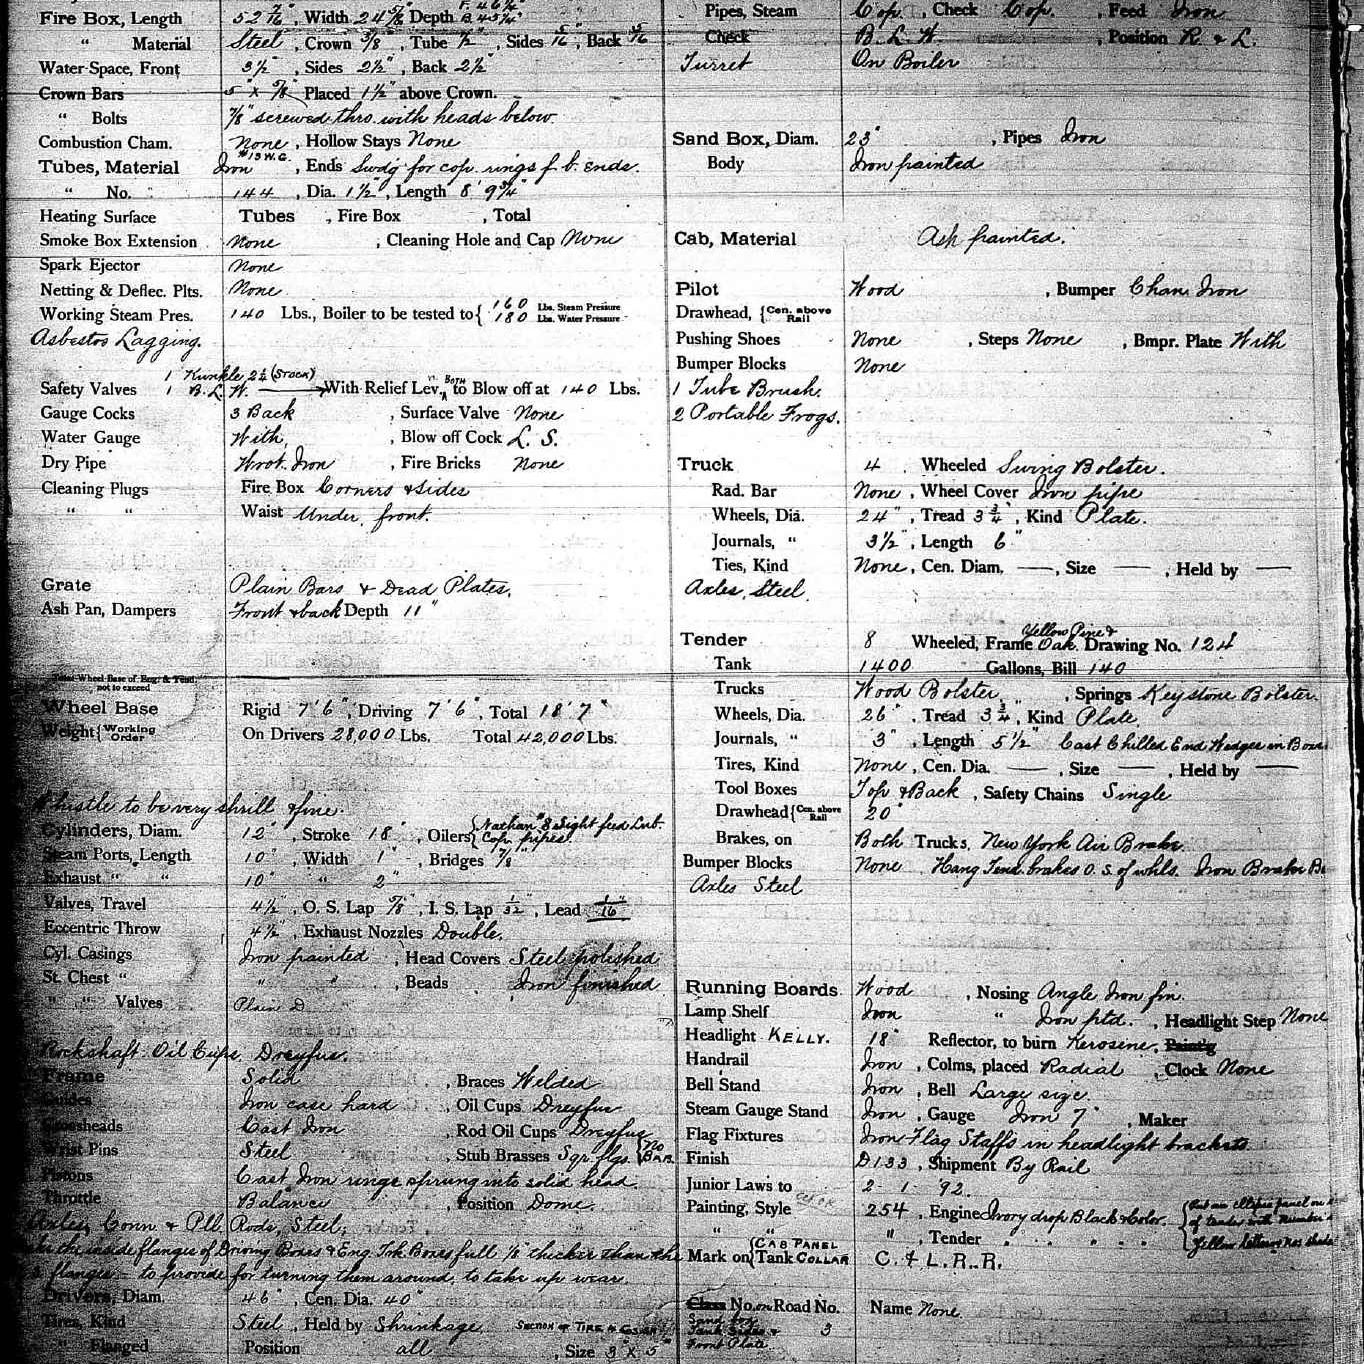 Fire Box, Length 52 7/16", Width 24 5/8" Depth F. 46 1/2" B. 45 1/4"
" Material Steel, Crown 3/8, Tube 1/2", Sides 5/16", Back 5/16
Water Space, Front 3 1/2", Sides 2 1/2", Back 2 1/2"
Crown Bars 5" x 5/8" Placed 1 1/2" above Crown.
" Bolts 7/8" screwed thro. with heads below.
Combustion Cham. None, Hollow Stays None
Tubes, Material Iron #13 W.G., Ends Swdg for cop. rings f. b. ends.
" No. 144, Dia. 1 1/2", Length 8' 9 3/4"
Heating Surface Tubes , Fire Box , Total
Smoke Box Extension None , Cleaning Hole and Cap None
Spark Ejector None
Netting & Deflec. Plts. None
Working Steam Pres. 140 Lbs., Boiler to be tested to { 160 Lbs. Steam Pressure 180 Lbs. Water Pressure
Asbestos Lagging.
1 Kunkle 2 1/4 (STOCK)
Safety Valves 1 B. L. W. With Relief Lev. BOTH to Blow off at 140 Lbs.
Gauge Cocks 3 Back , Surface Valve None
Water Gauge With , Blow off Cock L. S.
Dry Pipe Wrot. Iron , Fire Bricks None
Cleaning Plugs Fire Box Corners & Sides
" " Waist Under, front.
Grate Plain Bars & Dead Plates.
Ash Pan, Dampers Front & back Depth 11"
Total Wheel Base of Eng. & Tend. not to exceed
Wheel Base Rigid 7' 6", Driving 7' 6", Total 18' 7"
Weight { Working Order On Drivers 28,000 Lbs. Total 42,000 Lbs.
Whistle to be very shrill & fine.
Cylinders, Diam. 12", Stroke 18", Oilers { Nathan #8 Sight feed Lub. Cop. pipes.
Steam Ports, Length 10", Width 1", Bridges 7/8"
Exhaust " " 10" " 2"
Valves, Travel 4 1/2", O. S. Lap 5/8", I. S. Lap 1/32", Lead 1/16"
Eccentric Throw 4 1/2", Exhaust Nozzles Double.
Cyl. Casings Iron painted, Head Covers Steel polished
St. Chest " " " , Beads Iron finished
" " Valves Plain D
Rockshaft Oil Cups Dreyfus.
Frame Solid , Braces Welded
Guides Iron case hard , Oil Cups Dreyfus
Crossheads Cast Iron , Rod Oil Cups Dreyfus
Wrist Pins Steel , Stub Brasses Sqr. flgs. { No BAB.
Pistons Cast Iron rings sprung into solid head.
Throttle Balance , Position Dome.
Axles, Conn & Pll Rods, Steel.
the inside flanges of Driving Boxes & Eng. Trk Boxes full 1/8" thicker than the
flanges to provide for turning them around, to take up wear.
Drivers, Diam. 46", Cen. Dia. 40"
Tires, Kind Steel, Held by Shrinkage
" Flanged Position all , Size 3 x 5"
Pipes, Steam Cop. , Check Cop. , Feed Iron
Check B. L. W. , Position R & L.
Turret On Boiler
Sand Box, Diam. 23" , Pipes Iron
Body Iron painted
Cab, Material Ash painted.
Pilot Wood , Bumper Chan. Iron
Drawhead, { Cen. above Rail
Pushing Shoes None , Steps None , Bmpr. Plate With
Bumper Blocks None
1 Tube Brush.
2 Portable Frogs.
Truck 4 Wheeled Swing Bolster.
Rad. Bar None, Wheel Cover Iron pipe
Wheels, Dia. 24", Tread 3 3/4", Kind Plate.
Journals, " 3 1/2", Length 6"
Ties, Kind None, Cen. Diam. —, Size — , Held by —
Axles, Steel.
Tender 8 Wheeled, Frame Yellow Pine & Oak. Drawing No. 124
Tank 1400 Gallons, Bill 140
Trucks Wood Bolster , Springs Keystone Bolster.
Wheels, Dia. 26", Tread 3 3/4", Kind Plate.
Journals, " 3", Length 5 1/2" Cast Chilled End Wedges in Boxes
Tires, Kind None, Cen. Dia. —, Size — , Held by —
Tool Boxes Top & Back, Safety Chains Single
Drawhead { Cen. above Rail 20"
Brakes, on Both Trucks, New York Air Brake.
Bumper Blocks None Hang Tend. brakes O. S. of whls. Iron Brake
Axles Steel
Running Boards Wood , Nosing Angle Iron fin.
Lamp Shelf Iron " Iron ptd. , Headlight Step None
Headlight KELLY. 18" Reflector, to burn Kerosene, Paint'g
Handrail Iron, Colms, placed Radial , Clock None
Bell Stand Iron, Bell Large size.
Steam Gauge Stand Iron, Gauge Iron 7" , Maker
Flag Fixtures Iron Flag Staffs in headlight brackets
Finish D133, Shipment By Rail
Junior Laws to 2 - 1 - 92.
Painting, Style 254, Engine Ivory drop Black & Color. { Put an ellipse panel on of tender with Number Yellow letters no shade
" " " , Tender " " " "
Mark on { CAB PANEL Tank COLLAR C. & L. R. R.
Class No. on Road No. Name None
Sand box Tank Sides & Front Plate 3